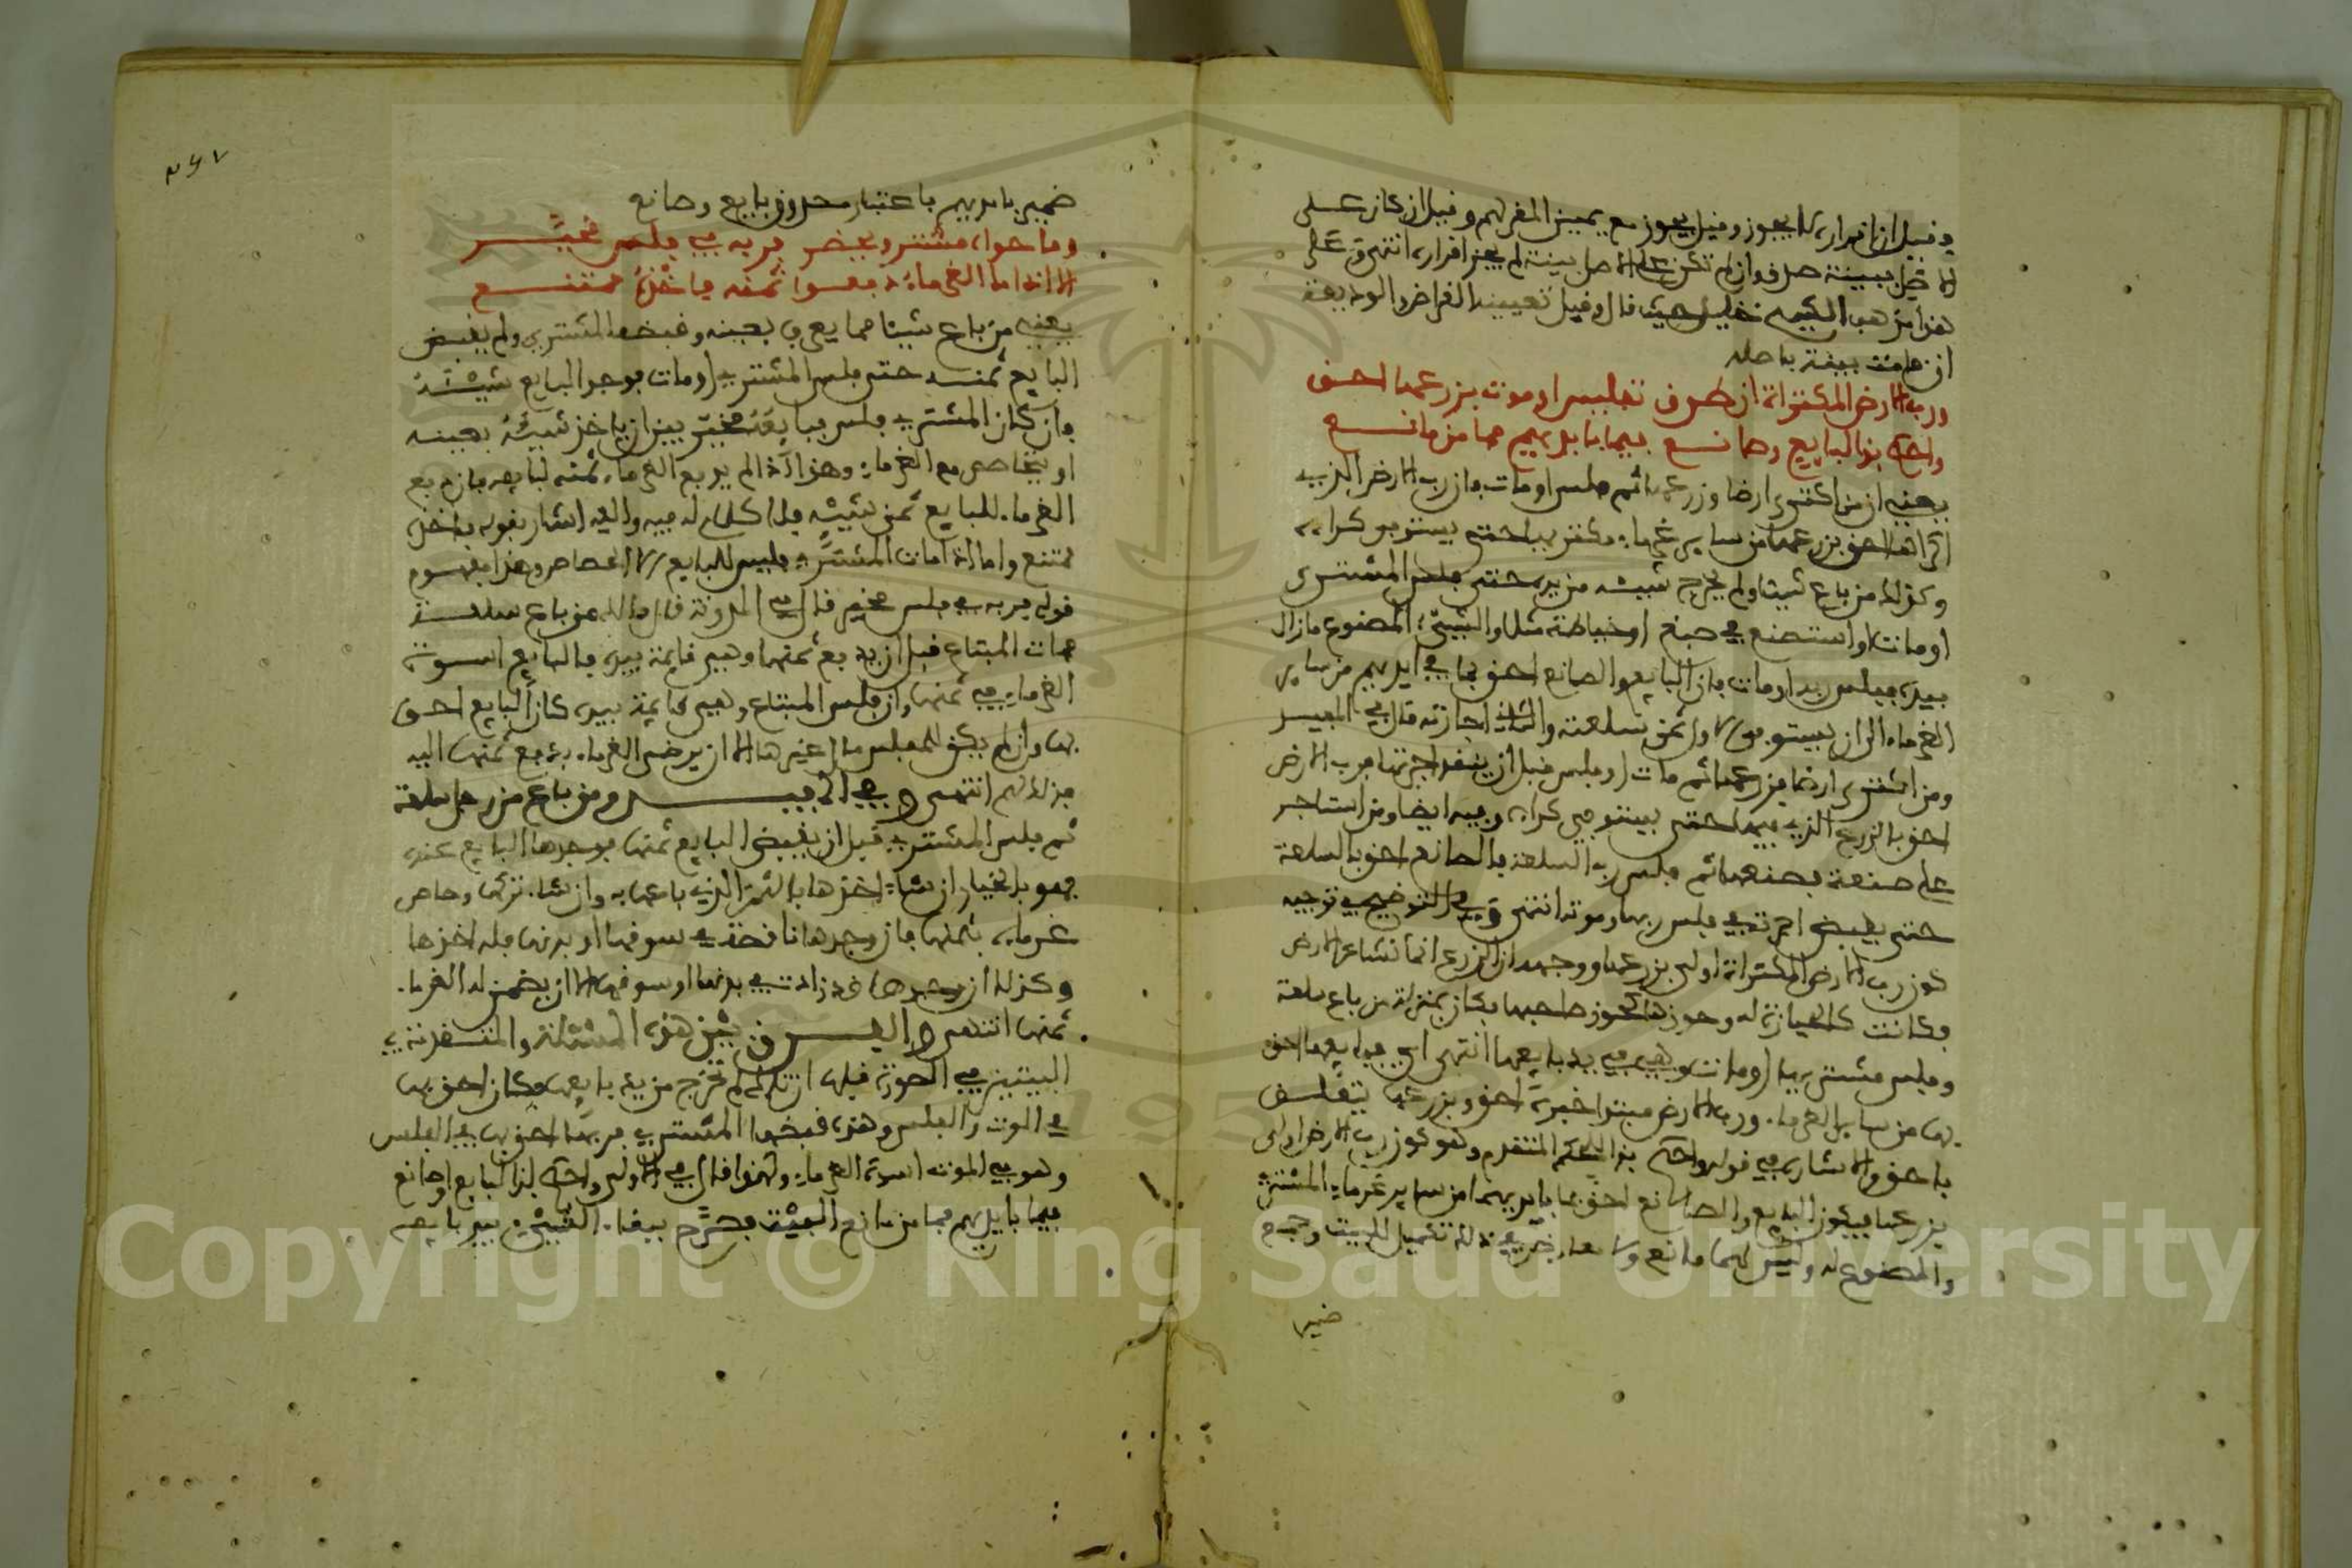 وقيل ان اقراره لا يجوز وقيل يجوز مع يمين المقر لهم وقيل ان كان على
الاصل ببينة صدق وان لم تكن على الاصل بينة لم يجز اقراره انتهى وعلى
هذا مذهب الشيخ خليل حيث قال وقيل تعيينه القراض والوديعة
ان قامت بينة باصله
ورب الارض المكتراة ان طرق تفليس او موت بزرعها احق
واحكم بذا لبايع وصانع فيما بايديهم فما من مانع
يعني ان من اكترى ارضا وزرعها ثم فلس او مات فان رب الارض الذي
اكراها احق بزرعها من ساير غرماء مكتريها حتى يستوفي كراءه
وكذلك من باع شيئا ولم يخرج شيئه من يده حتى فلس المشتري
او مات او استصنع في صبغ او خياطة مثلا والشيء المصنوع مازال
بيده ففلس ربه او مات فان البايع والصانع احق بما في ايديهم من ساير
الغرماء الى ان يستوفي الاول ثمن سلعته والثاني اجارته قال في المفيد
ومن اكترى ارضا فزرعها ثم مات او فلس قبل ان ينقد اجرتها فرب الارض
احق بالزرع الذي فيها حتى يستوفي كراءه وفيه ايضا ومن استاجر
على صنعة فصنعها ثم فلس رب السلعة فالصانع احق بالسلعة
حتى يقبض اجرته في فلس ربها وموته انتهى وفي التوضيح في توجيه
كون رب الارض المكتراة اولى بزرعها ووجهه ان الزرع انما نشا عن الارض
فكانت كالحيازة له وحوزها كحوز صاحبها فكان بمنزلة من باع سلعة
وفلس مشتريها او مات وهي في يد بايعها انتهى اي فبايعها احق
بها من ساير الغرماء ورب الارض مبتدا خبره احق وبزرعها يتعلق
باحق والاشارة في قوله واحكم بذا للحكم المتقدم وهو كون رب الارض اولى
بزرعها فيكون البايع والصانع احق بما بايديهما من ساير غرماء المشتري
والمصنوع له وليس لهما مانع ولا معارض في ذلك تتميل للبيت وجمع
ضمير
٢٤٧
ضمير بايديهم باعتبار صدوق بايع وصانع
وما حواه مشتر ويحضر فربه في فلس مخير
الا اذا ما الغرماء دفعوا ثمنه فاخذه ممتنع
يعني من باع شيئا مما يعرف بعينه وقبضه المشتري ولم يقبض
البايع ثمنه حتى فلس المشتري او مات فوجد البايع شيئه
فان كان المشتري فلس فبايعه مخير بين ان ياخذ شيئه بعينه
او يتحاصص مع الغرماء وهذا اذا لم يدفع الغرماء ثمنه لبايعه فان دفع
الغرماء للبايع ثمن شيئه فلا كلام له فيه واليه اشار بقوله فاخذه
ممتنع واما اذا مات المشتري فليس للبايع الا الحصاص وهذا مفهوم
قوله فربه في فلس مخير قال في المدونة قال مالك من باع سلعة
فمات المبتاع قبل ان يدفع ثمنها وهي قايمة بيده فالبايع اسوة
الغرماء في ثمنها وان فلس المبتاع وهي قايمة بيده كان البايع احق
بها وان لم يكن للمفلس مال غيرها الا ان يرضى الغرماء بدفع ثمنها اليه
فذلك لهم انتهى وفي المفيد ومن باع من رجل سلعة
ثم فلس المشتري قبل ان يقبض البايع ثمنها فوجدها البايع عنده
فهو بالخيار ان شاء اخذها بالثمن الذي باعها به وان شاء تركها وحاص
غرماءه بثمنها فان وجدها ناقصة في سوقها او بدنها فله اخذها
وكذلك ان وجدها قد زادت في بدنها او سوقها الا ان يضمن له الغرماء
ثمنها انتهى والفرق بين هذه المسئلة والمتقدمة في
البيتين في الصورة قبلها ان تلك لم تخرج من يد بايعها فكان احق بها
في الموت والفلس وهذه قبضها المشتري فربها احق بها في الفلس
وهو في الموت اسوة الغرماء ولهذا قال في الاولى واحكم بذا لبايع وصانع
فيما بايديهم فما من مانع البيت فصرح ببقاء الشيء بيد بايعه
Copyright © King Saud University
1957